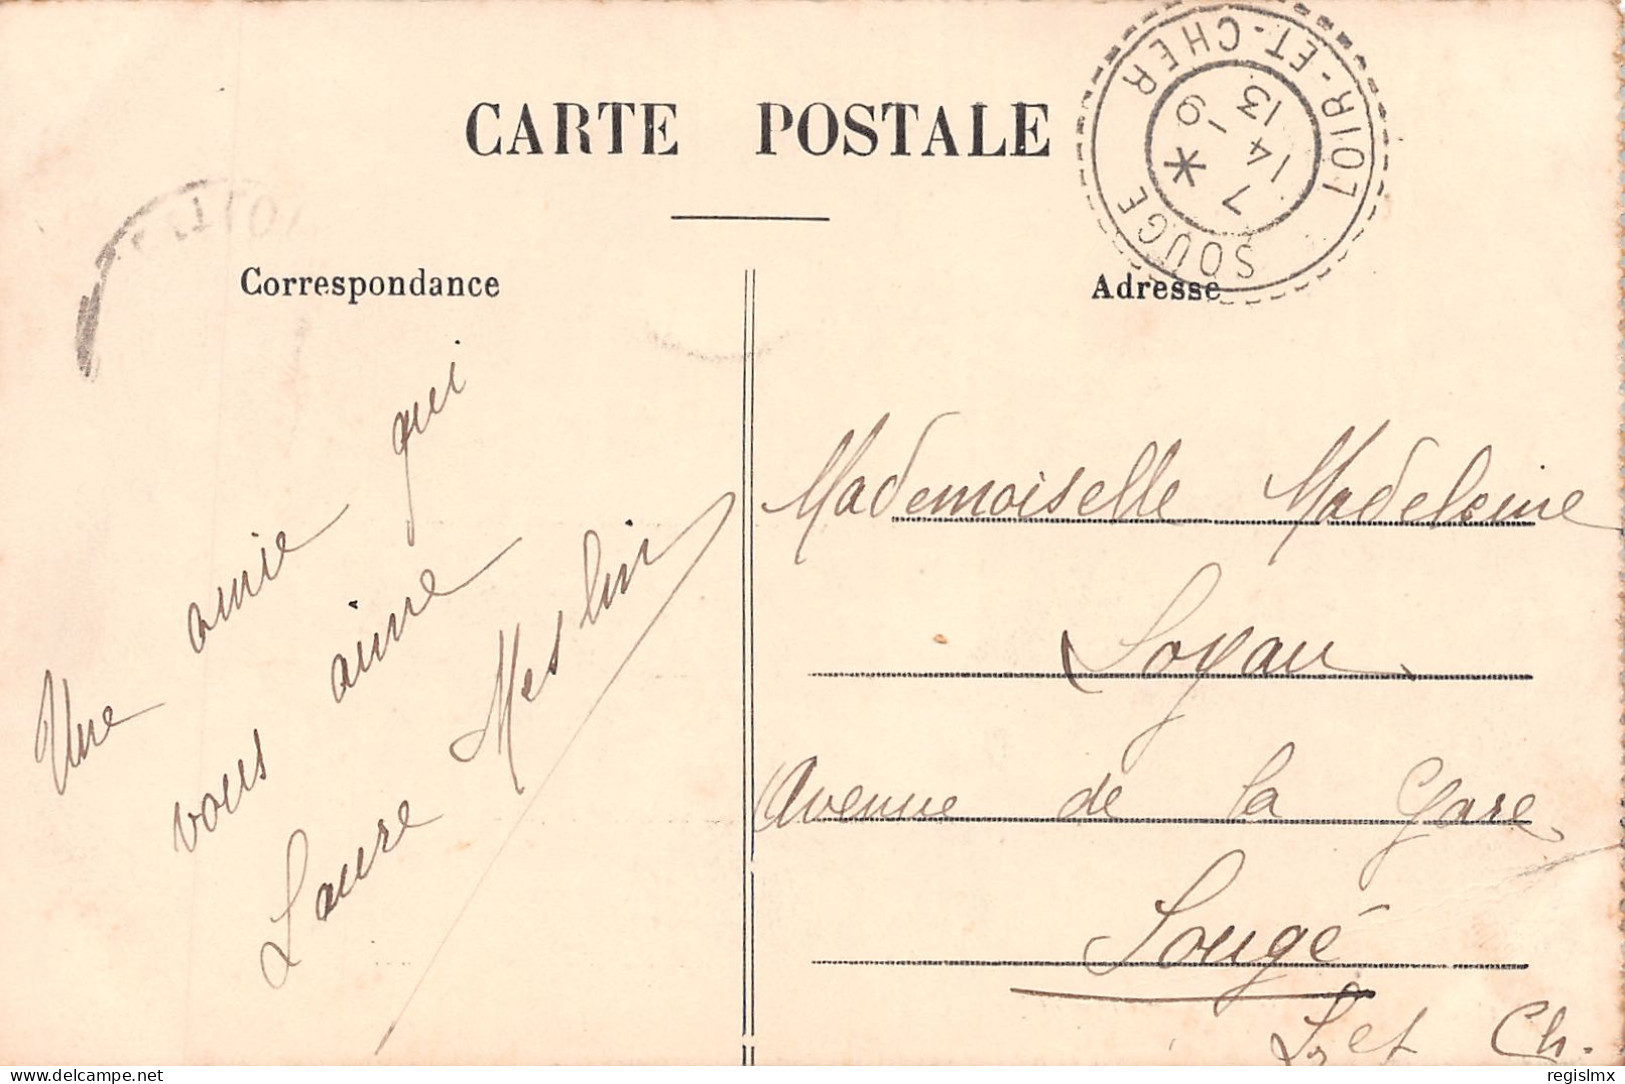 CARTE POSTALE
SOUGE LOIR-ET-CHER
7 * 9
14 -
13
Correspondance
Adresse
Une amie qui
vous aime
Laure Meslin
Mademoiselle Madeleine
Soyau
Avenue de la Gare
Sougé
L et Ch.
delcampe.net
regislmx